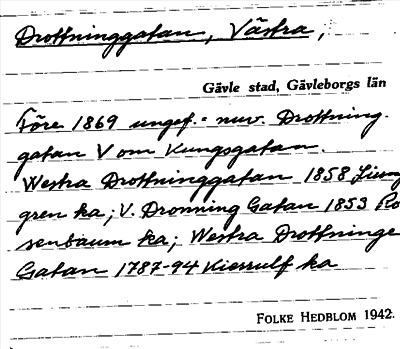 Drottninggatan, Västra,
Gävle stad, Gävleborgs län
Före 1869 ungef. = nuv. Drottning-
gatan V om Kungsgatan.
Westra Drottninggatan 1858 Ljung
gren ka; V. Dronning Gatan 1853 Ro
senbaum ka; Westra Drottninge
Gatan 1787-94 Kierrulf ka
FOLKE HEDBLOM 1942.